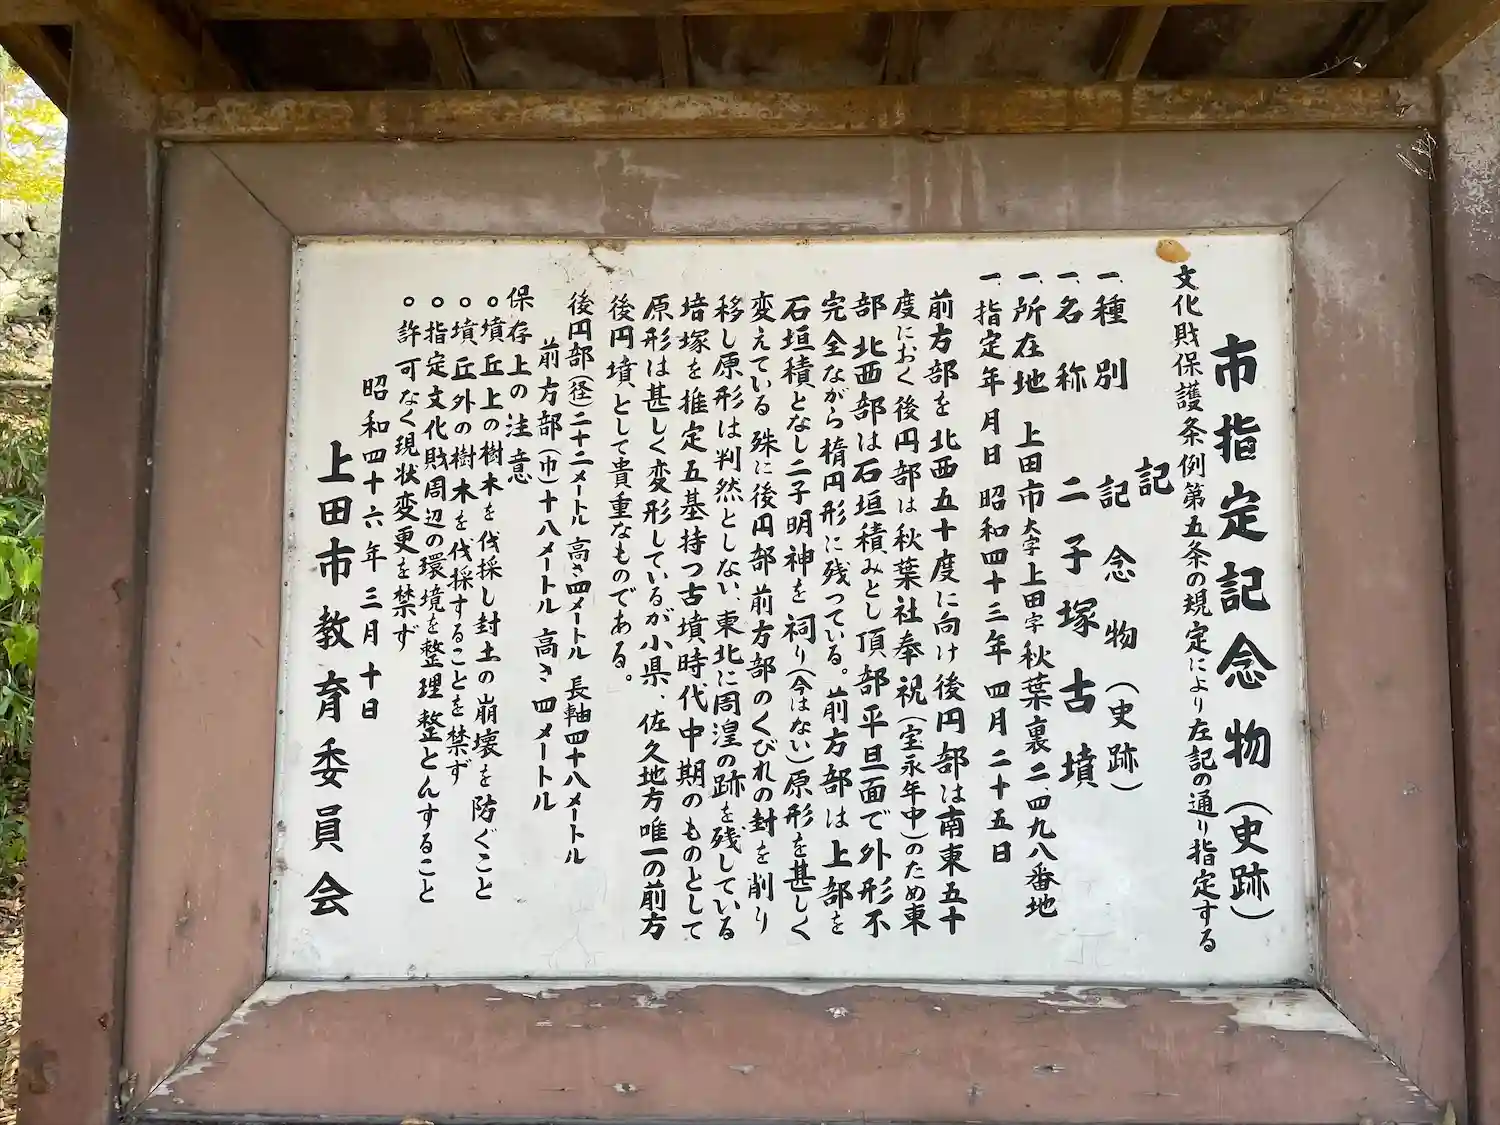 市指定記念物（史跡）
文化財保護条例第五条の規定により左記の通り指定する
記
一、種別　記念物（史跡）
一、名称　二子塚古墳
一、所在地　上田市大字上田字秋葉裏二、四九八番地
一、指定年月日　昭和四十三年四月二十五日
前方部を北西五十度に向け後円部は南東五十
度におく後円部は秋葉社奉祝（宝永年中）のため東
部　北西部は石垣積みとし頂部平旦面で外形不
完全ながら楕円形に残っている。前方部は上部を
石垣積となし二子明神を祠り（今はない）原形を甚しく
変えている　殊に後円部前方部のくびれの封を削り
移し原形は判然としない、東北に周湟の跡を残している
培塚を推定五基持つ古墳時代中期のものとして
原形は甚しく変形しているが小県、佐久地方唯一の前方
後円墳として貴重なものである。
後円部（径）二十二メートル　高さ四メートル　長軸四十八メートル
前方部（巾）十八メートル　高さ四メートル
保存上の注意
○墳丘上の樹木を伐採し封土の崩壊を防ぐこと
○墳丘外の樹木を伐採することを禁ず
○指定文化財周辺の環境を整理整とんすること
○許可なく現状変更を禁ず
昭和四十六年三月十日
上田市教育委員会